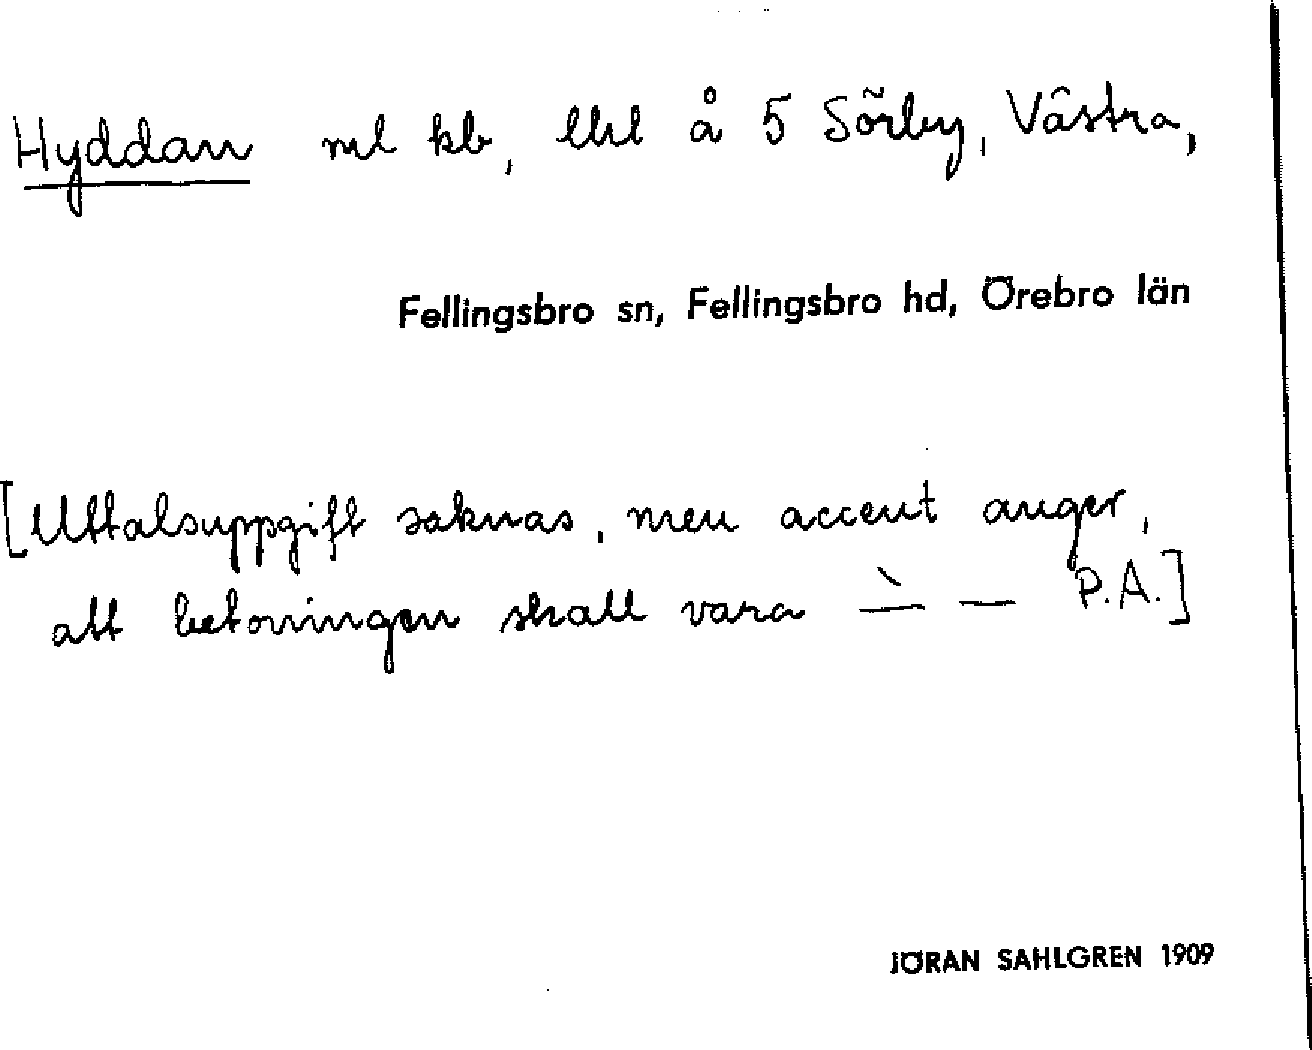 Hyddan ml kb, lht å 5 Sörby, Västra,
Fellingsbro sn, Fellingsbro hd, Örebro län
[Uttalsuppgift saknas, men accent anger,
att betoningen skall vara –̀ – P.A.]
JÖRAN SAHLGREN 1909